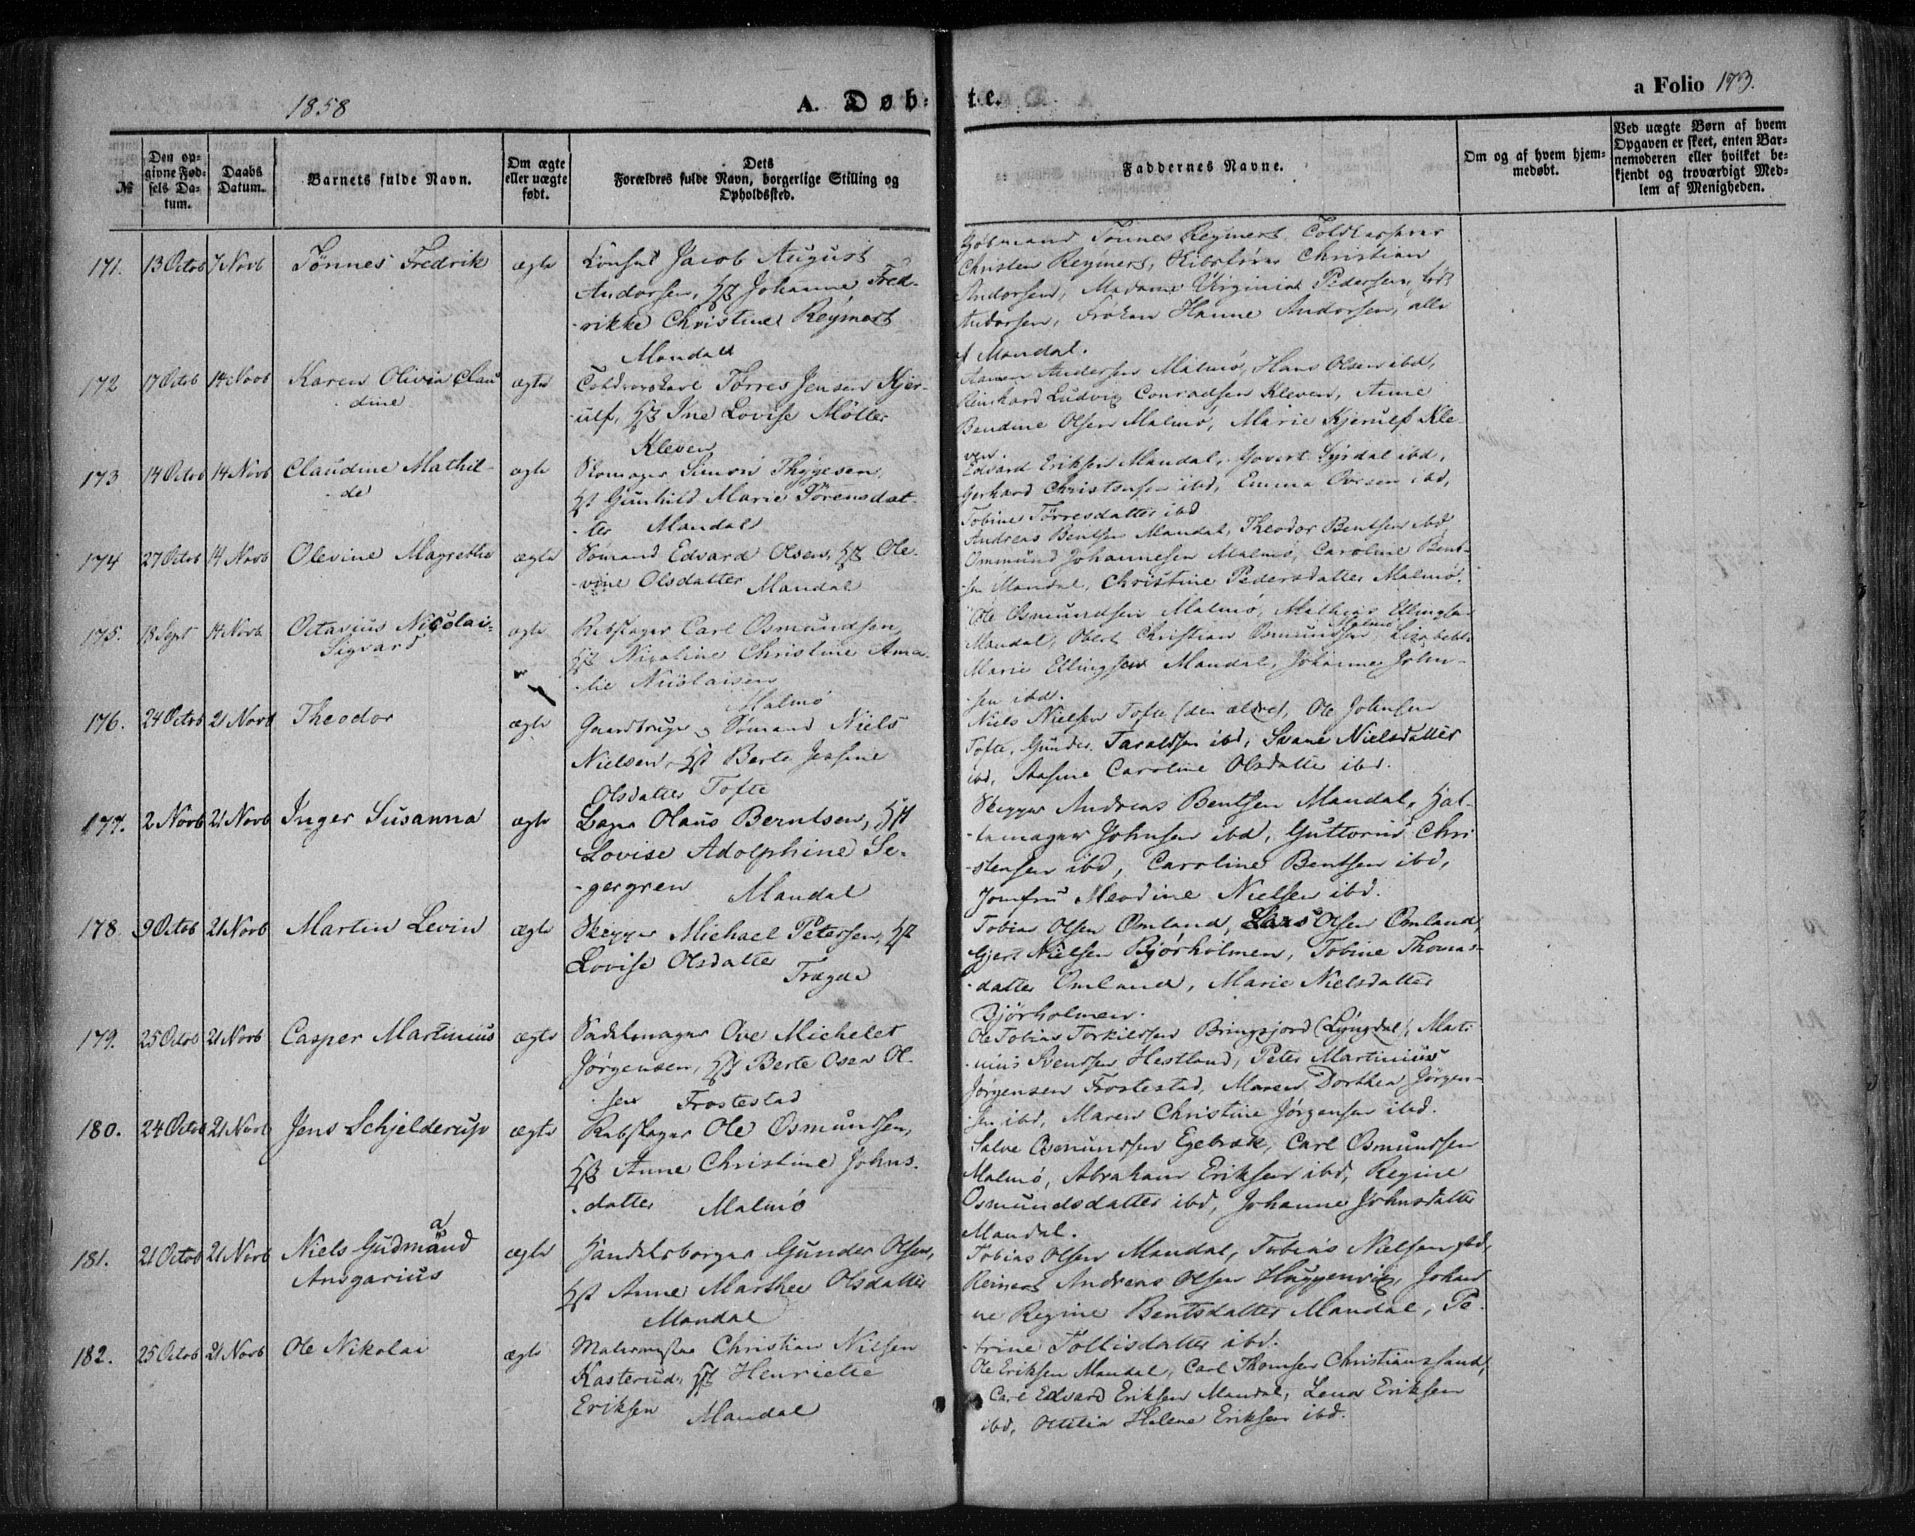 1858
A. Døb-te.
a Folio 173.
№
Den opgivne Fødsels Datum.
Daabs Datum.
Barnets fulde Navn.
Om ægte eller uægte født.
Dets Forældres fulde Navn, borgerlige Stilling og Opholdssted.
Faddernes Navne.
Om og af hvem hjemmedøbt.
Ved uægte Børn af hvem Opgaven er skeet, enten Barnemoderen eller hvilket bekjendt og troværdigt Medlem af Menigheden.
171. 13 Octob 7 Novb Tønnes Fredrik ægte
Consul Jacob August
Andorsen, Hst Johanne Fred-
-rikke Christine Reymert
Mandal
Tønnes Reymert,
Christen Reymert, Christian
Andorsen, Madame Virginia Pedersen, født
Andorsen, Frøken Hanne Andorsen, alle
af Mandal.
172 17 Octob 14 Novb Karen Olivia Clau
dine ægte
Tørres Jensen Kjer-
-ulf, Hst Ine Lovise Møller
Kleven
Andersen Malmø, Hans Olsen ibd,
Reinhard Ludvig Conradsen Kleven, Anne
Bendine Olsen Malmø, Marie Kjerulf Kle
ven.
173 14 Octob 14 Novb Claudine Mathil-
-de ægte
Skomager Simon Thygesen,
Hst Gunhild Marie Tørensdat-
-ter Mandal
Edvard Eriksen Mandal, Govert Syrdal ibd,
Gerhard Christensen ibd, Emma ibd,
Tobine Tørresdatter ibd
174 27 Octob 14 Novb Olevine Magrethe ægte
Sømand Edvard Olsen, Hst Ole-
-vine Olsdatter Mandal
Andreas Bentsen Mandal, Theodor Bentsen ibd,
Ommund Johannesen Malmø, Caroline Bent-
-sen Mandal, Christine Pedersdatter Malmø.
175. 18 Sept 14 Novb Octavius Nicolai
Sigvard ægte
Rebslager Carl Osmundsen,
Hst Nicoline Christine Ama-
-lie Nicolaisen
Malmø
Ole Osmundsen Malmø, Mathias
Mandal, Obert Christian Osmundsen Malmø, Lisabeth
Marie Ellingsen Mandal, Johanne John-
sen ibd.
176. 24 Octob 21 Novb Theodor ægte
Gaardbruger og Sømand Niels
Nielsen, Hst Berte Jessine
Olsdatter Tofte
Niels Nielsen Tofte (den ældre), Ole Johnsen
Tofte, Gunder Taraldsen ibd, Svane Nielsdatter
ibd, Aasine Caroline Olsdatter ibd.
177. 2 Novb 21 Novb Inger Susanna ægte
Olaus Berntsen, Hst
Lovise Adolphine Se-
-gergren Mandal
Skipper Andreas Bentsen Mandal, Hat-
-temager Johnsen ibd, Guttorm Chri
-stensen ibd, Caroline Bentsen ibd,
Jomfru Meodine Nielsen ibd.
178. 9 Octob 21 Novb Martin Levin ægte
Skipper Michael Petersen, Hst
Lovise Olsdatter
Trægde
Tobias Olsen Omland, Lars Olsen Omland,
Gjert Nielsen Bjørholmen, Tobine Thomas-
-datter Omland, Marie Nielsdatter
Bjørholmen.
179. 25 Octob 21 Novb Casper Martinius ægte
Sadelmager Ove Michelet
Jørgensen, Hst Berte Osea Ol-
-sen Frostestad
Ole Tobias Torkildsen Bringsjord (Lyngdal), Marti
-nius Svendsen Hestland, Peter Martinius
Jørgensen Frostestad, Maren Dorthea Jørgen-
-sen ibd, Maren Christine Jørgensen ibd.
180. 24 Octob 21 Novb Jens Schjelderup ægte
Rebslager Ole Osmundsen,
Hst Anne Christine Johns-
-datter Malmø
Salve Osmundsen Egebræk, Carl Osmundsen
Malmø, Abraham Eriksen ibd, Regine
Osmundsdatter ibd, Johanne Johnsdatter
Mandal.
181. 21 Octob 21 Novb Niels Gudmand
a
Ansgarius ægte
Handelsborger Gunder Olsen,
Hst Anne Marthee Olsdatter
Mandal
Tobias Olsen Mandal, Tobias Nielsen ibd,
Reinert Andreas Olsen Huggenvig, Johan
ne Regine Bentsdatter Mandal, Pe-
-trine Tollisdatter ibd.
182. 25 Octob 21 Novb Ole Nikolai ægte
Malermester Christian Nilsen
Kasterud, Hst Henriette
Eriksen Mandal
Ole Eriksen Mandal, Carl Thomsen Christianssand,
Carl Edvard Eriksen Mandal, Lena Eriksen
ibd, Ottilia Helene Eriksen ibd.